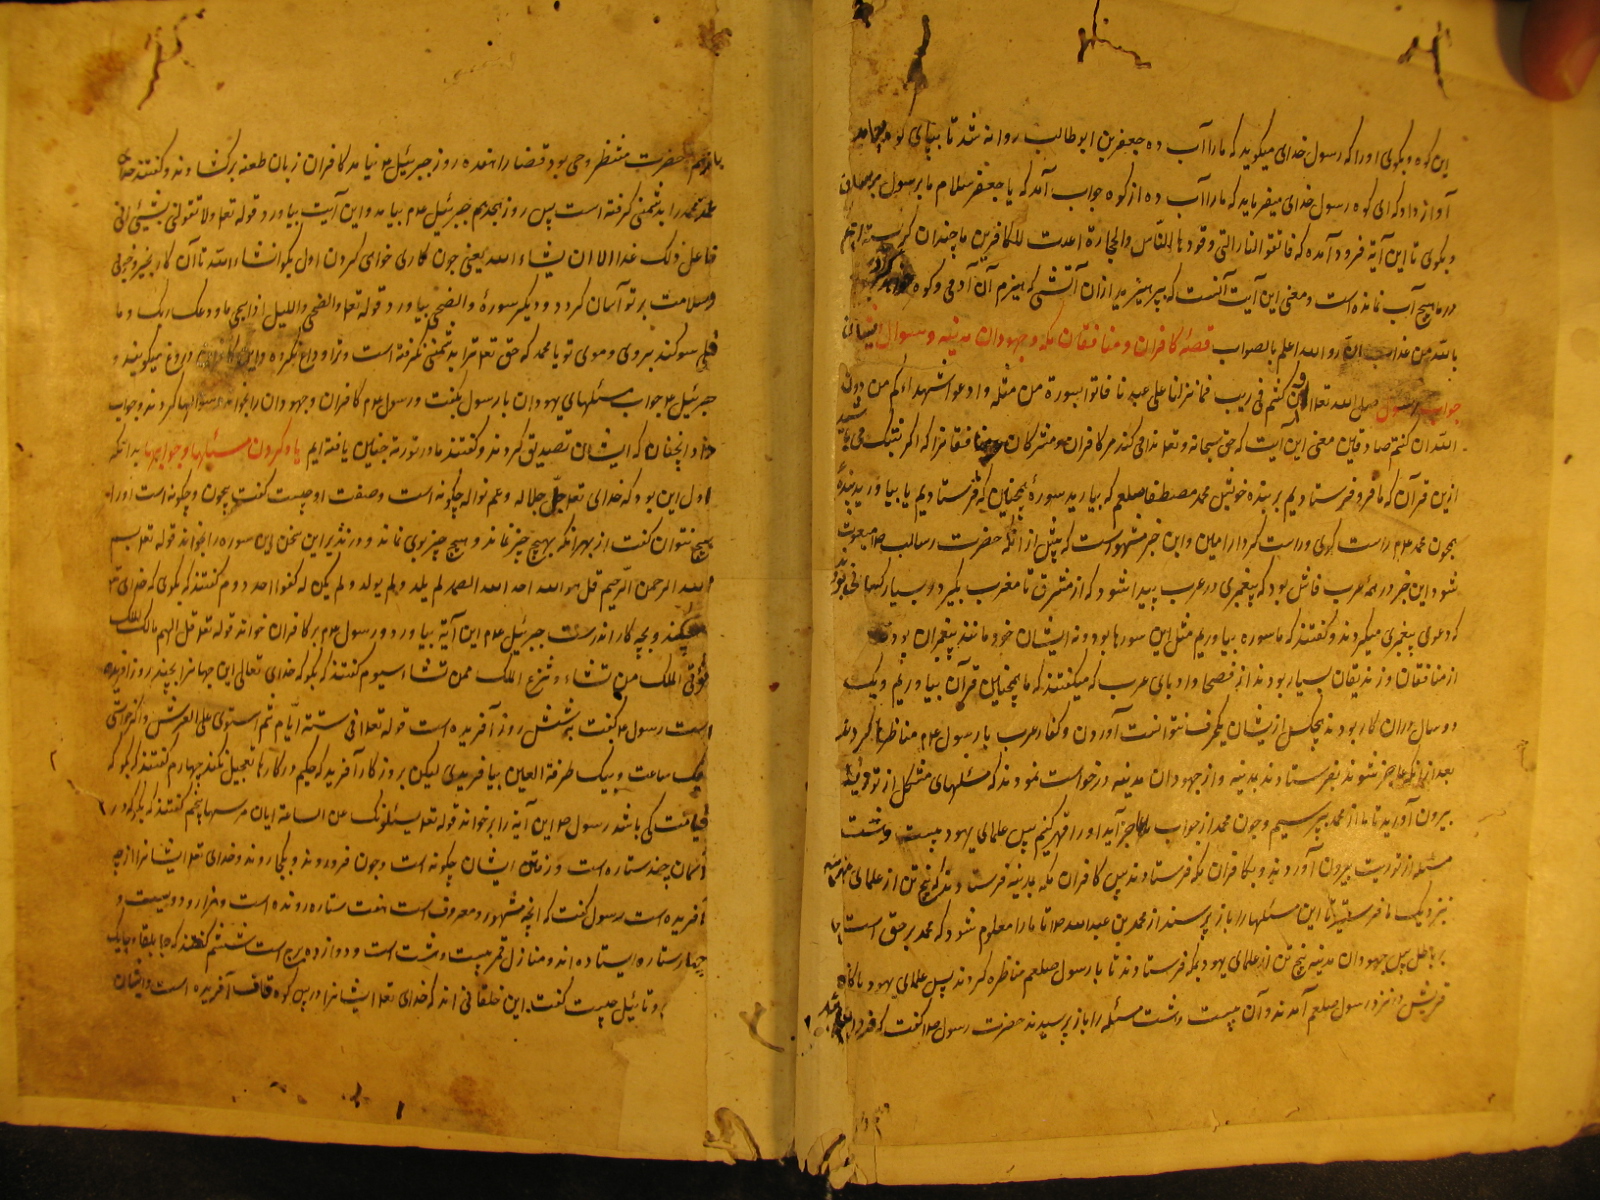 این کوه و بگوی او را که رسول خدای میگوید که ما را آب ده جعفر بن ابو طالب روانه شد تا بپای کوه
آواز داد که ای کوه رسول خدای میفرماید که ما را آب ده از کوه جواب آمد که یا جعفر سلام ما برسول
و بگوی تا این آیة فرود آمده که فاتقوا النار التی وقودها الناس والحجارة اعدت للکافرین ما چندان
در ما هیچ آب نمانده است و معنی این آیت آنست که بپرهیزید از آن آتشی که هیزم آن آدمی و کوه
بالله من عذاب الله والله اعلم بالصواب قصۀ کافران و منافقان مکه و جهودان مدینه و سوال
جواب رسول الله تعالی کنتم فی ریب مما نزلنا علی عبدنا فاتوا بسورة من مثله وادعوا شهداءکم من دون
الله ان کنتم صادقین معنی این آیت که حق سبحانه و تعالی ندا می کند مر کافران و مشرکان و منافقانرا که اگر بشک می
ازین قرآن که ما فرو فرستادیم بر بنده خویش محمد مصطفی صلعم که بیارید سورۀ همچنین که فرستادیم یا بیاورید بندۀ
همچون محمد علم راست گوی و راست کردار امین و این خبر مشهور است که پیش از آنکه حضرت رسالت
شود این خبر در همه عرب فاش بود که پیغمبری در عرب پیدا شود که از مشرق تا مغرب بگیرد و بسیار کسها
که دعوی پیغمبری میکردند و گفتند که ما سوره بیاوریم مثل این سورها بود و نه ایشان خود مانند پیغمبران بودند
از منافقان و زندیقان بسیار بودند از فصحا و ادبای عرب که میگفتند که ما همچنین قرآن بیاوریم و یک
دو سال در آن کار بودند هیچکس ازیشان یکحرف نتوانست آوردن و کفار عرب با رسول علم مناظره کردند
بعد از آنکه عاجز شوند نفر فرستادند بمدینه و از جهودان مدینه درخواست نمودند که مسئلهای مشکل از توریت
بیرون آورید تا ما از محمد بپرسیم و چون محمد از جواب ما عاجز آید او را قهر کنیم پس علمای یهود بیست و هشت
مسئله از توریت بیرون آوردند و بکافران مکه فرستادند پس کافران مکه بمدینه فرستادند که پنج تن از علمای
نزدیک ما فرستید تا این مسئلها را باز پرسند از محمد بن عبدالله تا ما را معلوم شود که محمد بر حق است
بر باطل پس جهودان مدینه پنج تن از علمای یهود بمکه فرستادند تا با رسول صلعم مناظره کردند پس علمای یهود با
قریش نزد رسول صلعم آمدند و آن بیست و هشت مسئله را باز پرسیدند حضرت رسول گفت که فردا
حضرت منتظر وحی بود قضا را هفده روز جبرئیل نیامد کافران زبان طعنه برگشادند و گفتند
محمد را بدشمنی گرفته است پس روز هجدهم جبرئیل علم بیامد و این آیت بیاورد قوله تعالی ولا تقولن لشیئ انی
فاعل ذلک غدا الا ان یشاء الله یعنی چون کاری خواهی کردن اول بگو انشاء الله تا آن کار بخیر
و سلامت بر تو آسان گردد و دیگر سورۀ والضحی بیاورد قوله تعالی والضحی واللیل اذا سجی ما ودعک ربک وما
قلی سوگند بروی و موی تو یا محمد که حق تعالی ترا بدشمنی نگرفته است و ترا وداع نکرده و این دروغ میگویند و
جبرئیل جواب مسئلهای یهودان با رسول بگفت و رسول علم کافران و جهودان را بخواند و جواب
داد آنچنان که ایشان تصدیق کردند و گفتند ما در توریة چنین یافته ایم یاد کردن مسئلها و جوابها بدانکه
اول این بود که خدای تعالی جل جلاله و عم نواله چگونه است و صفت او چیست گفت بیچون و چگونه است او را
هیچ نتوان گفت از بهر آنکه بهیچ چیز نماند و هیچ چیز بوی نماند و در نذیر این سخن این سوره را بخواند قوله تعالی بسم
الله الرحمن الرحیم قل هو الله احد الله الصمد لم یلد ولم یولد ولم یکن له کفوا احد دوم گفتند که بگوی که خدای
چکند و بچه کار اندرست جبرئیل علم این آیة بیاورد و رسول علم بر کافران خواند قوله تعالی قل اللهم مالک الملک
تؤتی الملک من تشاء وتنزع الملک ممن تشاء سیوم گفتند که بگو که خدای تعالی این جهانرا بچند روز آفریده
است رسول گفت بشش روز آفریده است قوله تعالی فی ستة ایام ثم استوی علی العرش و اگر خواستی
بیک ساعت و بیک طرفة العین بیافریدی لیکن بروزگار آفرید که حکیم در کارها تعجیل نکند چهارم گفتند که بگو که
قیامت کی باشد رسول این آیة را برخواند قوله تعالی یسئلونک عن الساعة ایان مرسها پنجم گفتند که بگو که در
آسمان چند ستاره است و زمین ایشان چگونه است و چون فرو روند و بکجا روند و خدای تعالی ایشانرا از چه
آفریده است رسول گفت که آنچه مشهور و معروف است هفت ستاره رونده است و هزار و دویست و
چهار ستاره ایستاده اند و منازل قمر بیست و هشت است و دوازده برج است ششم گفتند که جابلقا و
و تائیل چیست گفت این خلقانی اند که خدای تعالی ایشانرا در پس کوه قاف آفریده است و ایشان